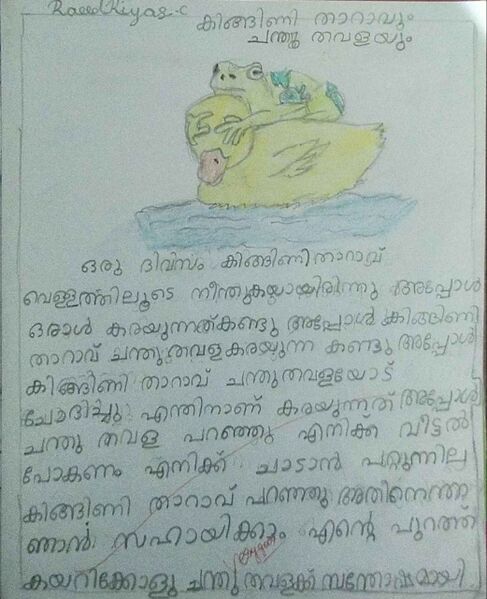 കിങ്ങിണി താറാവും
ചന്തു തവളയും
ഒരു ദിവസം കിങ്ങിണി താറാവ്
വെള്ളത്തിലൂടെ നീന്തുകയായിരിന്നു അപ്പോൾ
ഒരാൾ കരയുന്നത്കണ്ടു അപ്പോൾ കിങ്ങിണി
താറാവ് ചന്തു തവളകരയുന്ന കണ്ടു അപ്പോൾ
കിങ്ങിണി താറാവ് ചന്തുതവളയോട്
ചോദിച്ചു എന്തിനാണ് കരയുന്നത് അപ്പോൾ
ചന്തു തവള പറഞ്ഞു എനിക്ക് വീട്ടൽ
പോകണം എനിക്ക് ചാടാൻ പറ്റുന്നില്ല
കിങ്ങിണി താറാവ് പറഞ്ഞു അതിനെന്താ
ഞാൻ സഹായിക്കാം എന്റെ പുറത്ത്
കയറിക്കോളു ചന്തു തവളക്ക് സന്തോഷമായി